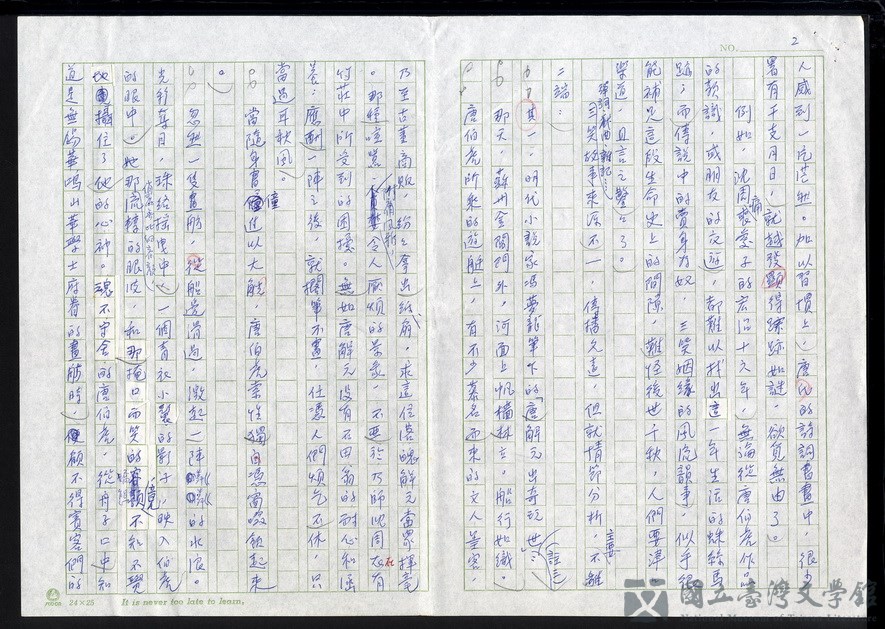 NO. 2
人感到一片茫然。加以習慣上，唐氏的詩詞書畫中，很少
署有干支月日，就越發顯得蹤跡如謎，欲覓無由了。
例如，沈周喪子的宏治十六年，無論從唐伯虎作品
的款識，或朋友的交遊，都難以找出這一年生活的蛛絲馬
跡；而傳說中的賣身為奴，三笑姻緣的風流韻事，似乎很
能補足這段生命史上的間隙，難怪後世千秋，人們要津津
樂道，且言之鑿鑿了。
三笑故事來源不一，傳播久遠，但就情節分析，主要不離
二端：
其一，明代小說家馮夢龍筆下的「唐解元出奇玩世」：（註三）
那天，蘇州金閶門外，河面上帆檣林立，船行如織。
唐伯虎所乘的遊艇上，有不少慕名而來的文人墨客，
乃至古董商販，紛紛拿出紙扇，求這位落魄解元當眾揮毫
。那喧嚷令人厭煩的景象，不亞於乃師沈周在有
竹莊中所受到的困擾。無如唐解元沒有石田翁的耐心和涵
養；應酬一陣之後，就擱筆不畫，任憑人們煩乞不休，只
當過耳秋風。
當隨身書僮進以大觥，唐伯虎索性獨自憑窗啜飲起來
。
忽然一隻畫舫，從船邊滑過，激起一陣的水浪。
光彩奪目，珠絡搖曳中，一個青衣小鬟的影子，映入伯虎
的眼中。她那流轉的眼波，和那掩口而笑的不知不覺
地攝住了他的心神。魂不守舍的唐伯虎，從舟子口中知
道是無錫華鴻山華學士府眷的畫舫時，顧不得賓客們的
24×25
It is never too late to learn.
國立臺灣文學館
National Museum of Taiwan Literature